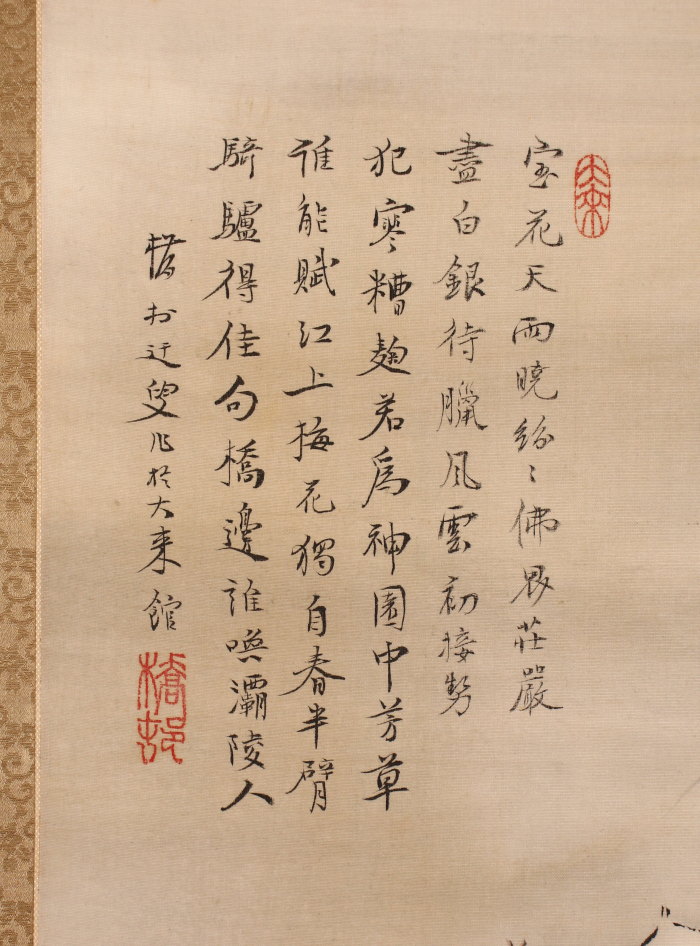 大来
宝花天雨曉紛〻佛界莊嚴
盡白銀待臘風雲初接勢
犯寒糟麹若爲神園中芳草
誰能賦江上梅花獨自春半臂
騎驢得佳句橋邊誰喚灞陵人
於迂叟作於大来館
橋邨